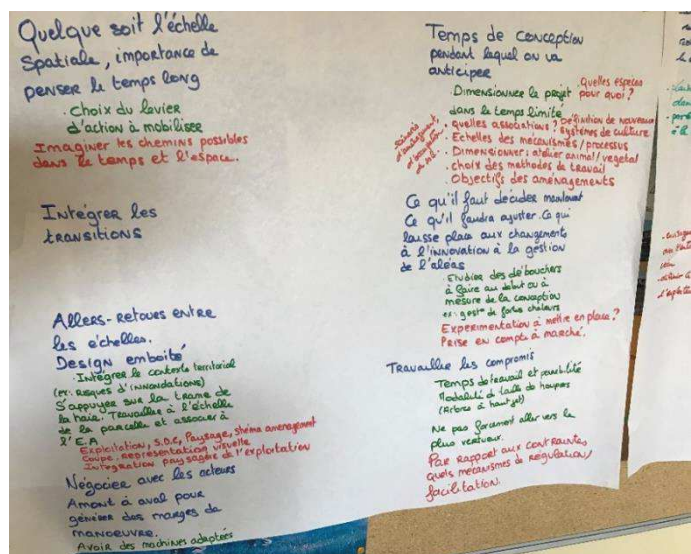 Quelque soit l'échelle
Spatiale, importance de
penser le temps long
. Choix du levier
d'action à mobiliser
Imaginer les chemins possibles
dans le temps et l'espace.
Intégrer les
transitions
Allers-Retours entre
les échelles.
Design emboité
. Intégrer le contexte territorial
(ex. Risques d'innondations)
S'appuyer sur la trame de
la haie. Travailler à l'échelle
de la parcelle et associer à
l'E.A
Exploitation, S.D.C, Paysage, shéma aménagement
Coupe, representation visuelle
Integration paysagère de l'exploitation
Négocier avec les acteurs
Amont à aval pour
générer des marges de
manoeuvre.
Avoir des machines adaptées
Temps de conception
pendant lequel on va
anticiper
. Quelles especes
. Dimensionner le projet pour quoi ?
dans le temps limité
. quelles associations ? Définition de nouveaux
systèmes de culture
. Echelles des mécanismes / processus
. Dimensionner : atelier animal / vegetal
. choix des methodes de travail
. Objectifs des aménagements
Ce qu'il faut décider maintenant
Ce qu'il faudra ajuster. Ce qui
laisse place aux changements
à l'innovation à la gestion
de l'aléas
Etudier des débouchers
à faire au debut ou à
mesure de la conception
ex: gest° de fortes chaleurs
Expérimentation à mettre en place ?
Prise en compte à marché.
Travailler les compromis
Temps de travail et pénibilité
Modalité de taille de houpiers
(Arbres à haut jet)
Ne pas forcément aller vers le
plus vertueux.
Par rapport aux contraintes
quels mécanismes de régulation/
facilitation.